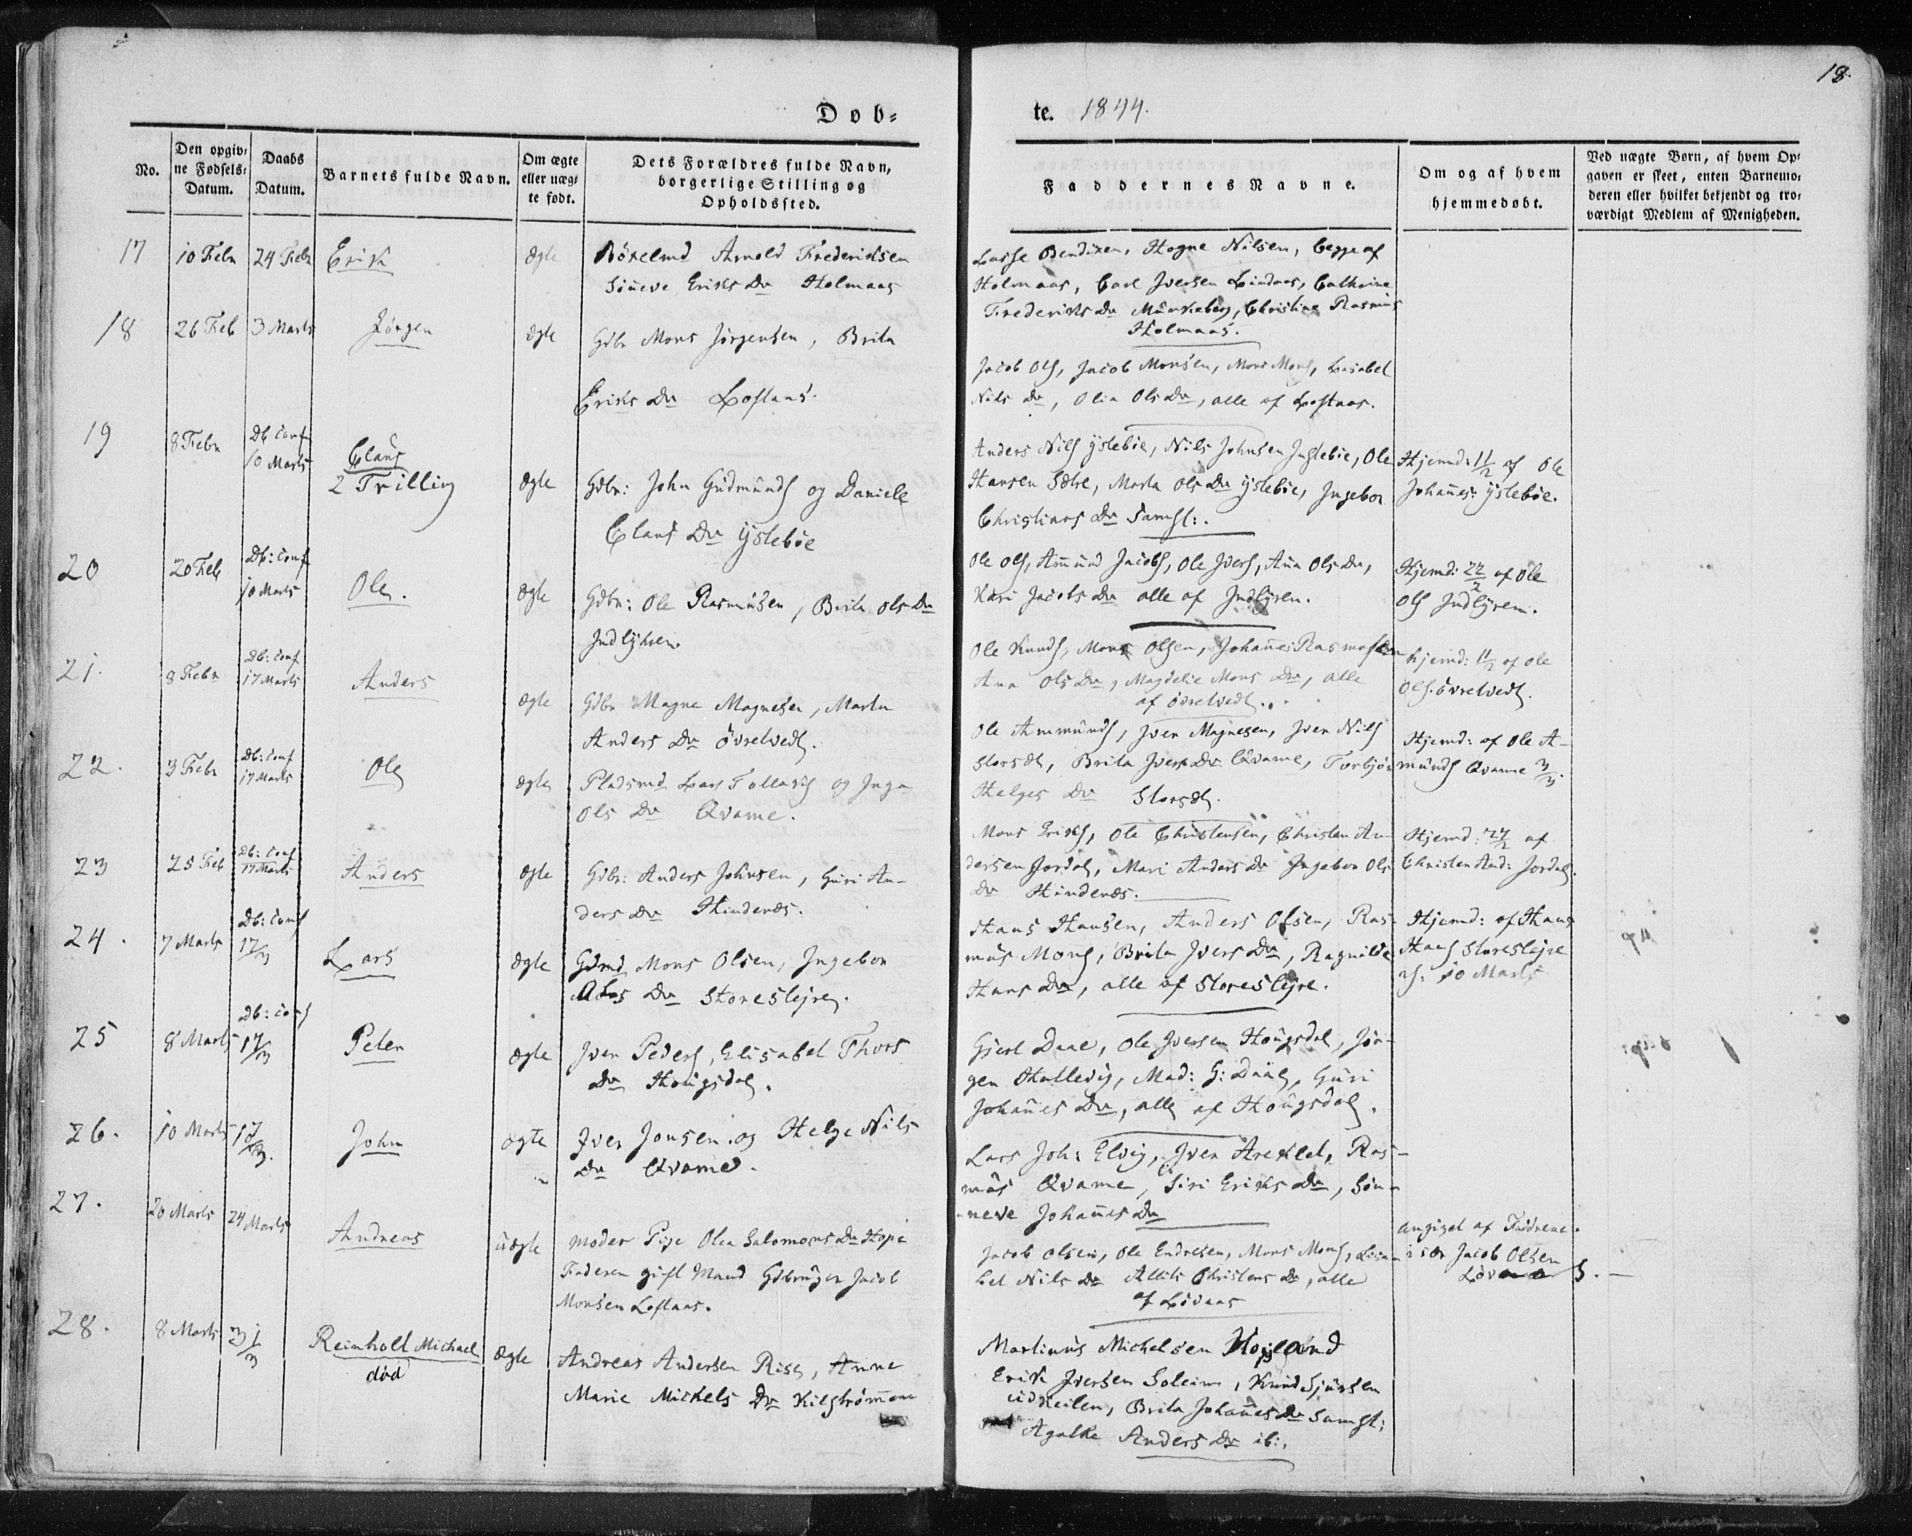 18.
Døb-
te. 1844.
No.
Den opgiv-
ne Fødsels-
Datum.
Daabs
Datum.
Barnets fulde Navn.
Om ægte
eller uæg-
te født.
Dets Forældres fulde Navn,
borgerlige Stilling og
Opholdssted.
Faddernes Navne.
Om og af hvem
hjemmedøbt.
Ved uægte Børn, af hvem Op-
gaven er skeet, enten Barnemo-
deren eller hvilket bekjendt og tro-
værdigt Medlem af Menigheden.
17 10 Febr 24 Febr Erik ægte Arnold Frederiksen
Eriks Dr Holmaas
Lasse Bendixen, Hogne Nilsen, begge af
Holmaas, Carl Iversen Lindaas, Cathrine
Frederiks Dr Munkeberg, Christine Rasmus
Holmaas.
18 26 Feb 3 Marts Jørgen ægte Gdbr Mons Jørgensen, Brita
Eriks Dr Loftaas.
Jacob Ols, Jacob Monsen, Mons Mons, Lisabet
Nils Dr, Olia Ols Dr, alle af Loftaas.
19 8 Febr Db: Conf
10 Marts
Claus
2 Trilling ægte Gdbr: John Gudmunds og Daniele
Claus Dr Ystebøe
Anders Nils Ystebøe, Nils Johnsen Ystebøe, Ole
Hansen Sætre, Marta Ols Dr Ystebøe, Ingebor
Christians Dr Samst:.
Hjemd: 11/2 af Ole
Johannes: Ystebøe.
20 20 Feb Db: Conf
10 Marts Ole. ægte Gdbr: Ole Rasmusen, Brita Ols Dr
Ole Ols, Amund Jacobs, Ole Ivers, Ana Ols Dr,
Kari Jacobs Dr alle af
Hjemd: 22/2 af Ole
Ols
21. 8 Febr Db: Conf
17 Marts Anders ægte Gdbr Magne Magnesen, Marta
Anders Dr Øvretvedt.
Ole Knuds, Mons Olsen, Johannes Rasmussen
Ana Ols Dr, Magdelie Mons Dr, alle
af Øvretvedt..
Hjemd: 11/2 af Ole
Ols. Øvretvedt.
22. 3 Febr Db: Conf
17 Marts Ole ægte Pladsmd Lars Tollefs og Inga
Ols Dr Qvame.
Ole Ammunds, Iver Magnesen, Iver Nils
Brita Ivers Dr Qvame, Torbjør
Helges Dr
Hjemd: af Ole A-
munds Qvame 3/3.
23 25 Feb Db: Conf
17 Marts Anders ægte Gdbr: Anders Johnsen, Guri An-
ders Dr Hindenæs.
Mons Eriks, Ole Christensen, Christen An-
dersen Jordal, Mari Anders Dr Ingebor Ols
Dr Hindenæs.
Hjemd: 27/2 af
Christen And: Jordal.
24. 7 Marts Db: Conf
17/3 Lars ægte Gdmd Mons Olsen, Ingebor
Dr Storesteire.
Hans Hansen, Anders Olsen, Ras-
mus Mons, Brita Ivers Dr, Ragnilde
Hans Dr, alle af Storesteire.
Hjemd: af Hans
Hans Storesteire
10 Marts
25 8 Marts Db: Conf
17/3 Peter ægte Iver Peders, Elisabet Thors
Dr Hougsdal.
Gjert Daae, Ole Iversen Hougsdal, Jør-
gen Hallevig, Mad: G: Daae, Guri
Johannes Dr, alle af Hougsdal.
26. 10 Marts 17/3. John ægte Iver Jonsen og Helge Nils
Dr Qvame.
Lars Joh: Elvig, Iver Ras-
mus Qvame, Siri Eriks Dr, Søn-
neve Johannes Dr
27. 20 Marts 24 Marts Andreas uægte Moder Pige Olia Salomons Dr Hope
Faderen gift Mand Gdbruger Jacob
Monsen Loftaas.
Jacob Olsen, Ole Endresen, Mons Mons, Lisa-
bet Nils Dr Christens Dr, alle
af Løvaas
angivet af Fadrene.
især Jacob Olsen
Løvaas. —
28. 8 Marts 31/3 Reinholt Michael
død ægte Andreas Andersen Rise, Anne
Marie Michels Dr Kilstrømmen
Martinus Michelsen
Erik Iversen Soleim, Knud Sjursen
Brita Johannes Dr Samst:
Agathe Anders Dr ib:.